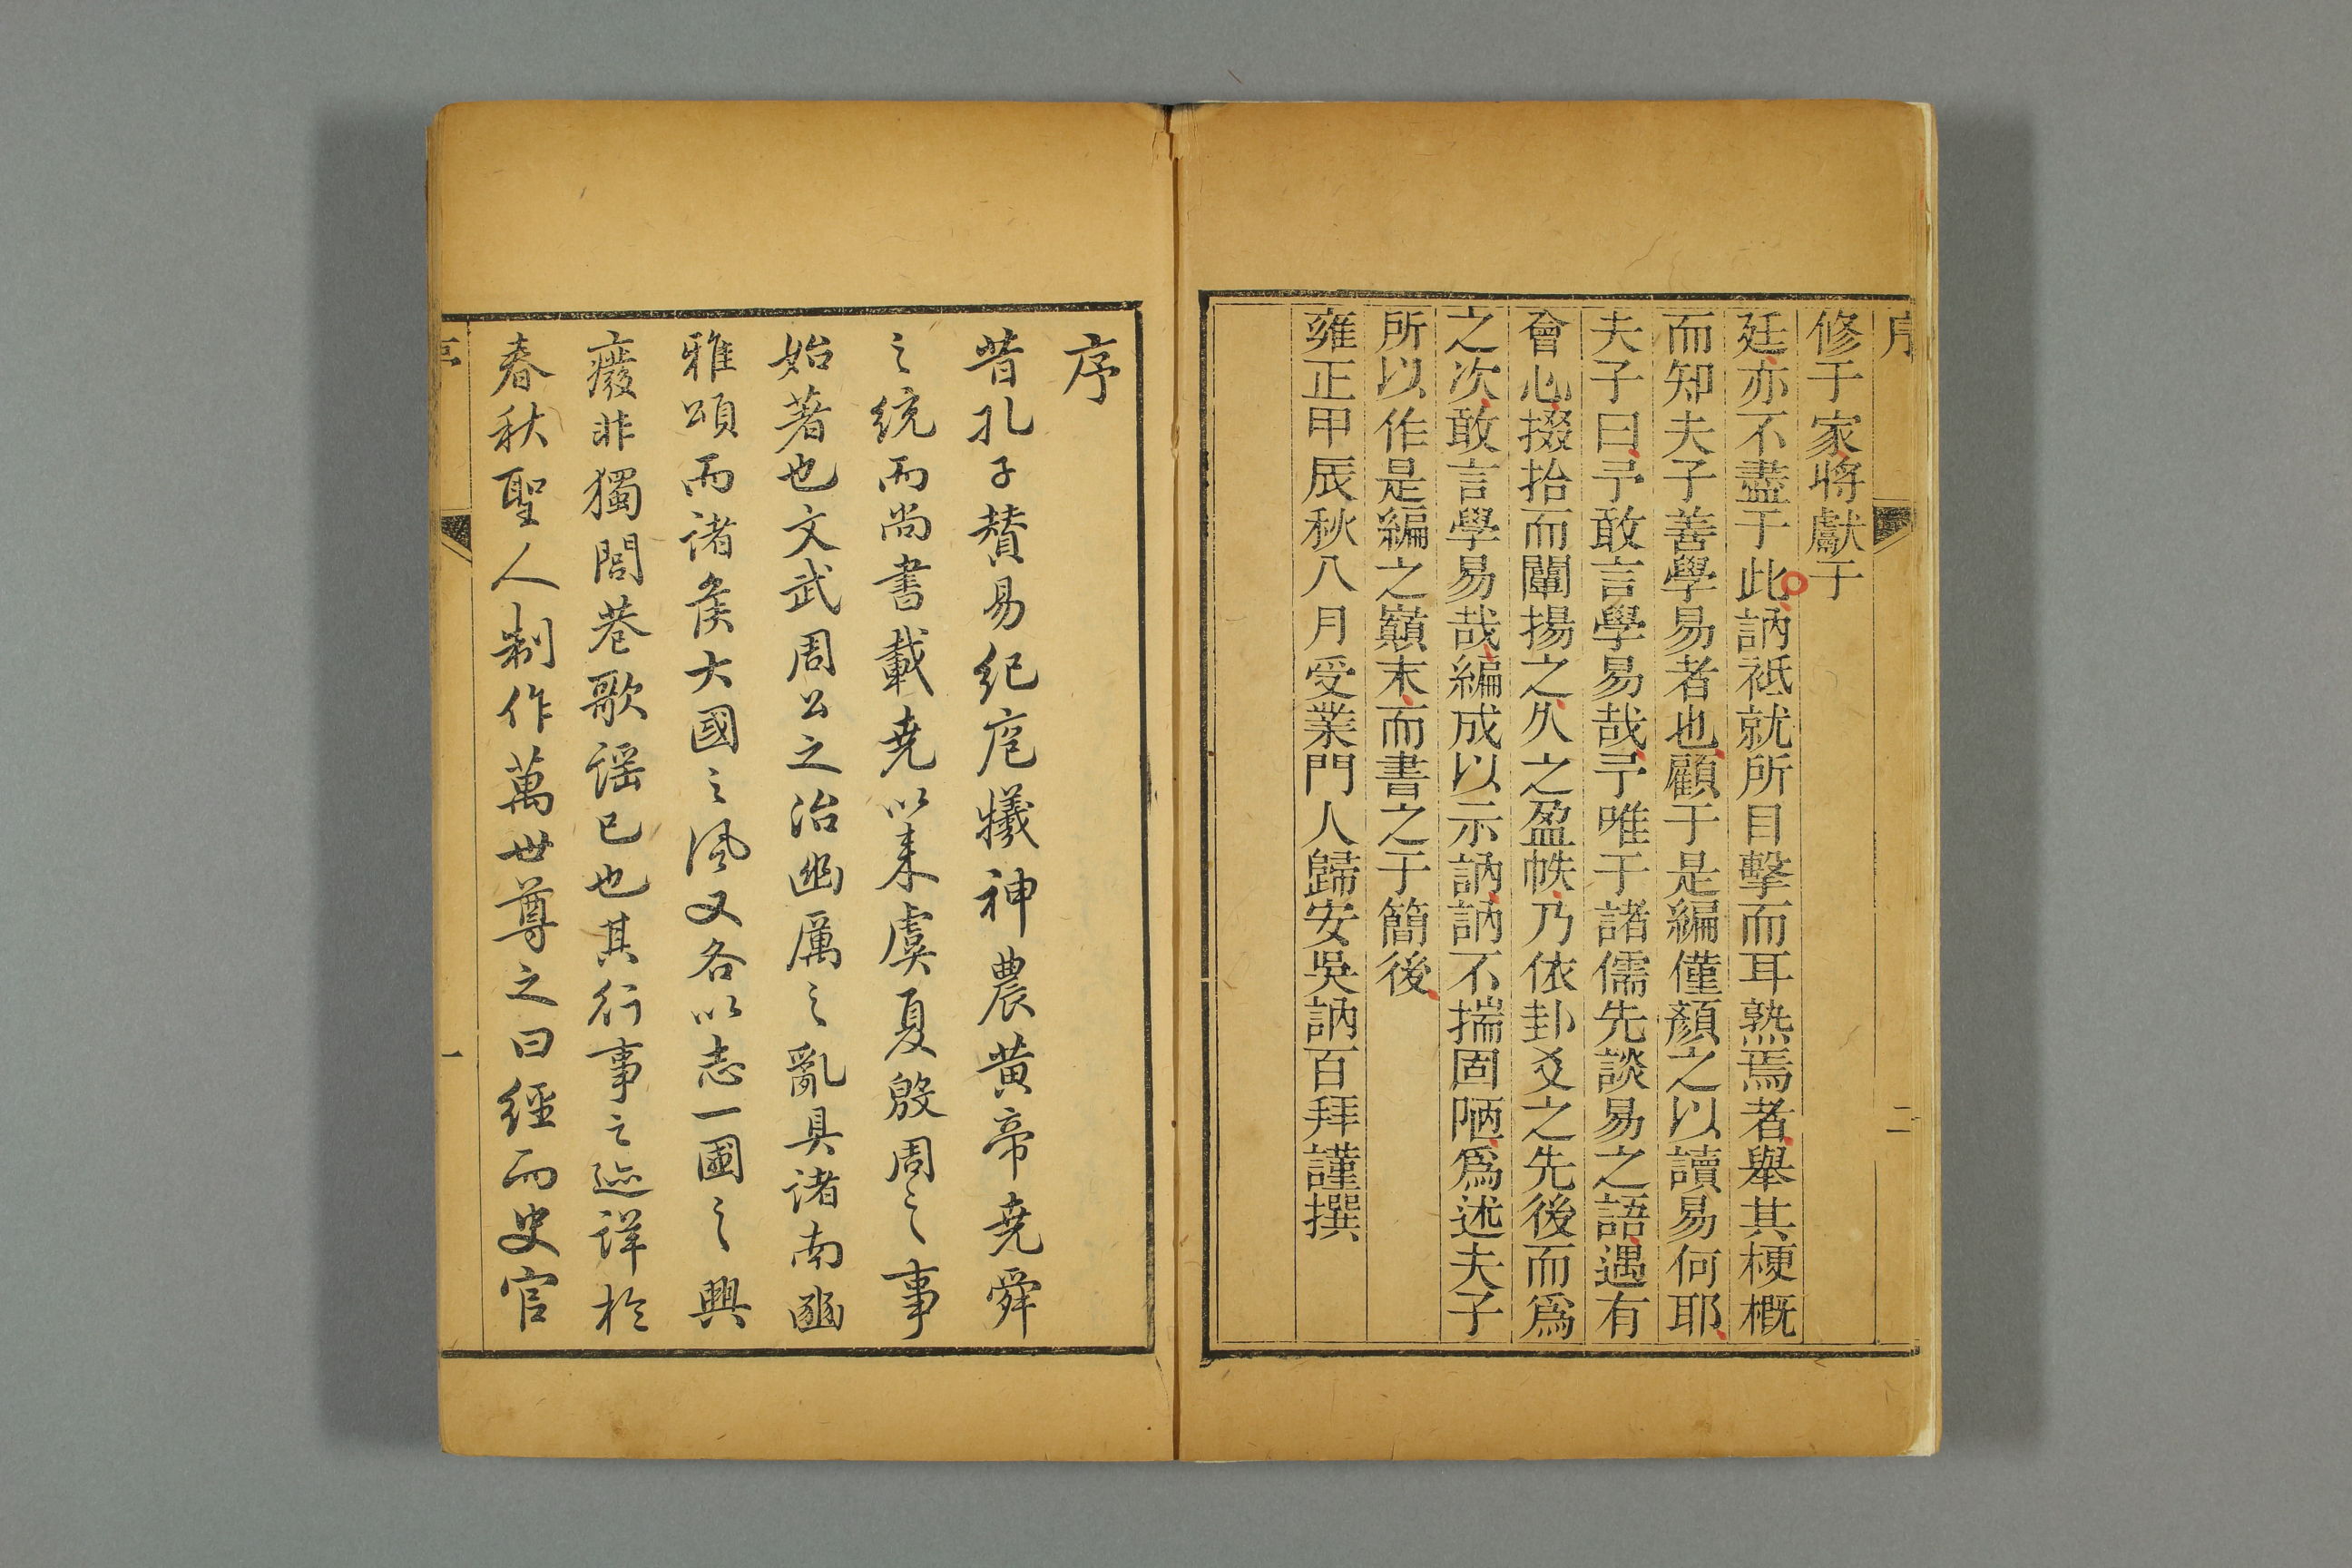 序
二
修于家將獻于
廷亦不盡于此訥祗就所目擊而耳熟焉者舉其梗概
而知夫子善學易者也顧于是編僅顏之以讀易何耶
夫子曰予敢言學易哉予唯于諸儒先談易之語遇有
會心掇拾而闡揚之久之盈帙乃依卦爻之先後而爲
之次敢言學易哉編成以示訥訥不揣固陋爲述夫子
所以作是編之巔末而書之于簡後
雍正甲辰秋八月受業門人歸安吳訥百拜謹撰
序
昔孔子贊易紀庖犧神農黃帝堯舜
之統而尚書載堯以来虞夏殷周之事
始著也文武周公之治幽厲之亂具諸南豳
雅頌而諸侯大國之風又各以志一國之興
癈非獨閭巷歌謡已也其行事之迹详於
春秋聖人制作萬世尊之曰經而史官
序
一